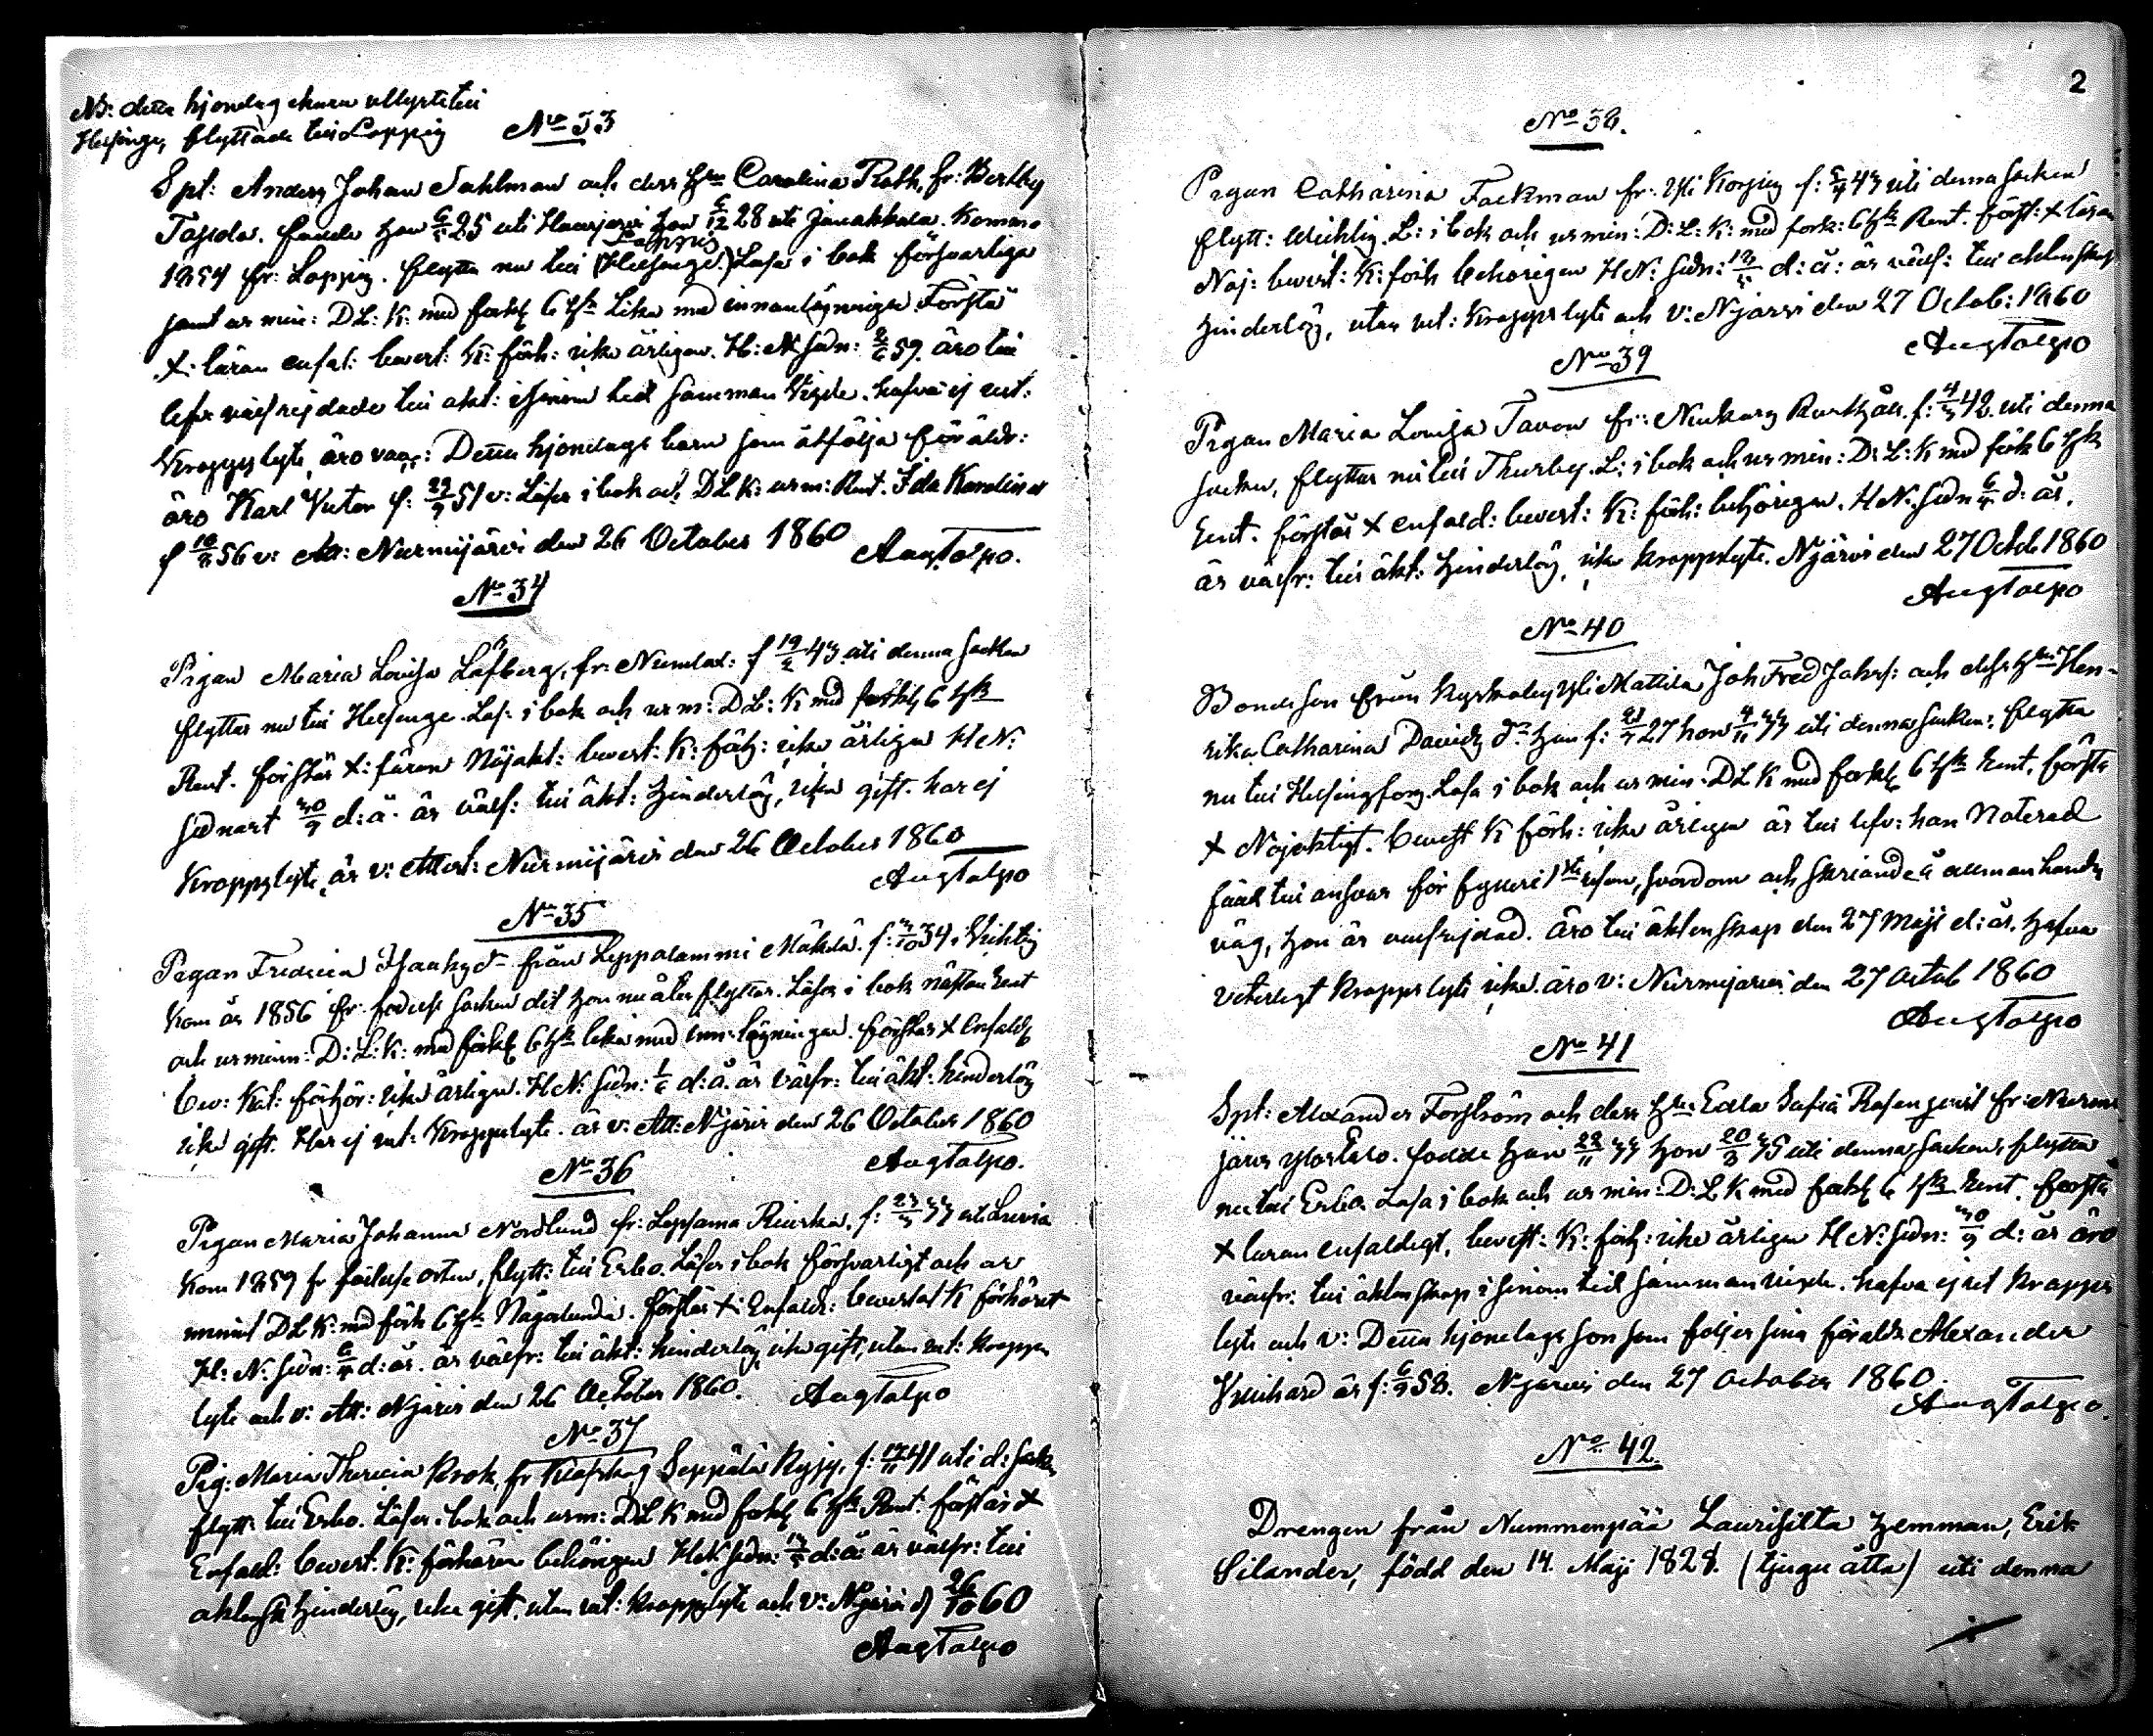 NB: detta hjonelag ehuru utlystt till
Helsinge, flyttade till Loppis
No 33
Spt: Anders Johan Sahlman och dess h:u Carolina Roth, fr: Bertby
Tojsda. födde han 6/5 25 uti Hausjärvi hon 5/12 28 uti Janakkala. Kommo
1854 fr: Loppis. flytta nu till (Helsinge) Läsa i bok försvarliga
Loppis
samt ur min: D L: K: med förkl 6 Hfst Lika med innanläsninge. Förstå
X: läran enfal: bevist: K: förh: icke årligen. H: N sidn: 2/6 59. äro till
lefv: välfrejdade till äkt: i sinom tid samman vigde. hafva ej vet:
Kroppslyte, äro vacc: Detta hjonelags barn som åtfölja föräldr:
äro Karl Victor f: 29/7 51 v: Läser i bok och D L K: ur m: Rent. Ida Karolina
f 10/8 56 v: Att: Nurmijärvi den 26 October 1860
Aug Talpo.
No 34
Pigan Maria Lovisa Löfberg, fr: Numlax: f 19/2 43 uti denna socken
flyttar nu till Helsinge. Läs: i bok och ur m: D L: K med förkl 6 Hfst
Rent. förstår X: läran Nöjakt: bevist: K: förh: icke årligen H N:
sidnart 30/9 d: å: är välf: till äkt: hinderlös, icke gift. har ej
Kroppslyte, är v: Attest: Nurmijärvi den 26 October 1860
Aug Talpo
No 35
Pigan Fredrica Isaaks dr från Leppälammi Mäkelä. f: 3/10 34 i Vichtis
Kom år 1856 fr födelse socken dit hon nu åter flyttar. Läser i bok nästan Rent
och ur minn: D: L: K: med förkl 6 Hfst lika med inn: läsningen. förstår X Enfaldt
bev: Kat: förhör: icke årligen. H N: sidn: 1/6 d: å. är välfr: till äkt: hinderlös
icke gift. Har ej vet: Kroppslyte. är v: Att: Njärvi den 26 October 1860
Aug Talpo.
No 36
Pigan Maria Johanna Nordlund fr: Lepsama f: 23/3 33 uti
Kom 1859 fr födelse orten, flytt: till Esbo. Läser i bok försvarligt och ur
minnet D L K: med förk 6 Hfst Någorlunda. förstår X: Enfald: bevistat K förhöret
H: N: sidn: 6/5 d: år. är välfr: till äkt: hinderlös icke gift, utan vet: kropps
lyte och v: Att: Njärvi den 26 October 1860. Aug Talpo
No 37
Pig: Maria Theresia Krok, fr Klafskog Seppälä f: 17/11 41 uti d: sock
flytt: till Esbo. Läser i bok och ur m: D L K med förkl 6 Hfst Rent. förstår X
Enfald: bevist: K: förhören behörigen H N sidn: d: å: är välfr: till
äktensk hinderlös, icke gift, utan vet: kroppslyte och v: Njärvi d 26/10 60
Aug Talpo
2
No 38.
Pigan Catharina Fackman fr: Yli Korpis f: 5/4 43 uti denna socken
flytt: Wichtis. L: i bok och ur min: D: L: K: med förk: 6 Hfst Rent. först: X läran
Nöj: bevist: K: förh behörigen H N: sidn: d: å: är välf: till äktenskap
hinderlös, utan vet: Kroppslyte och v: Njärvi den 27 Octob: 1860
Aug Talpo
No 39
Pigan Maria Lovisa Tavon fr: Nuckars f: 4/3 42 uti denna
socken, flyttar nu till Thusby. L: i bok och ur min: D: L: K med förk 6 Hfst
Rent. förstår X enfald: bevist: K: förh: behörigen. H N: sidn 6/5 d: år.
är välfr: till äkt: hinderlös, icke kroppslyte. Njärvi den 27 Octob 1860
Aug Talpo
No 40
Bonde son från Kyrkoby Yli Mattila Joh Fred Johss: och dess h:u Hen-
rika Catharina Davids dr han f: 21/7 27 hon 4/11 33 uti denna socken, flytta
nu till Helsingfors. Läsa i bok och ur min: D L K med förkl 6 Hfst Rent. först
X Nöjaktigt. bevist K förh: icke årligen är till lefv: han Noterad
fäld till ansvar för fylleri 1sta resan, svordom och skriande å allman lands
väg, hon är välfrejdad. äro till äktenskap den 27 Maji d: år. hafva
veterligt kropps lyte icke. äro v: Nurmijärvi den 27 Octob 1860
Aug Talpo
No 41
Spt: Alexander Forsström och dess h:u Edla Sofia Rosenqvist fr: Nurmi
järvi födde han 22/11 33 hon 20/3 35 uti denna socken, flytta
nu till Esbo. Läsa i bok och ur min: D: L K med förkl 6 Hfst Rent. förstå
X läran enfaldigt, bevist: K: förh: icke årligen H N: sidn: 30/9 d: år äro
välfr: till äktenskap i sinom tid samman vigde. hafva ej vet kropps
lyte och v: Detta hjonelags son som följer sina föräldr Alexander
är f: 6/9 58. Njärvi den 27 October 1860.
Aug Talpo.
No 42.
Drengen från Nummenpää Laurisilta hemman, Erik
Silander, född den 14. Maji 1828. (tjugu åtta) uti denna